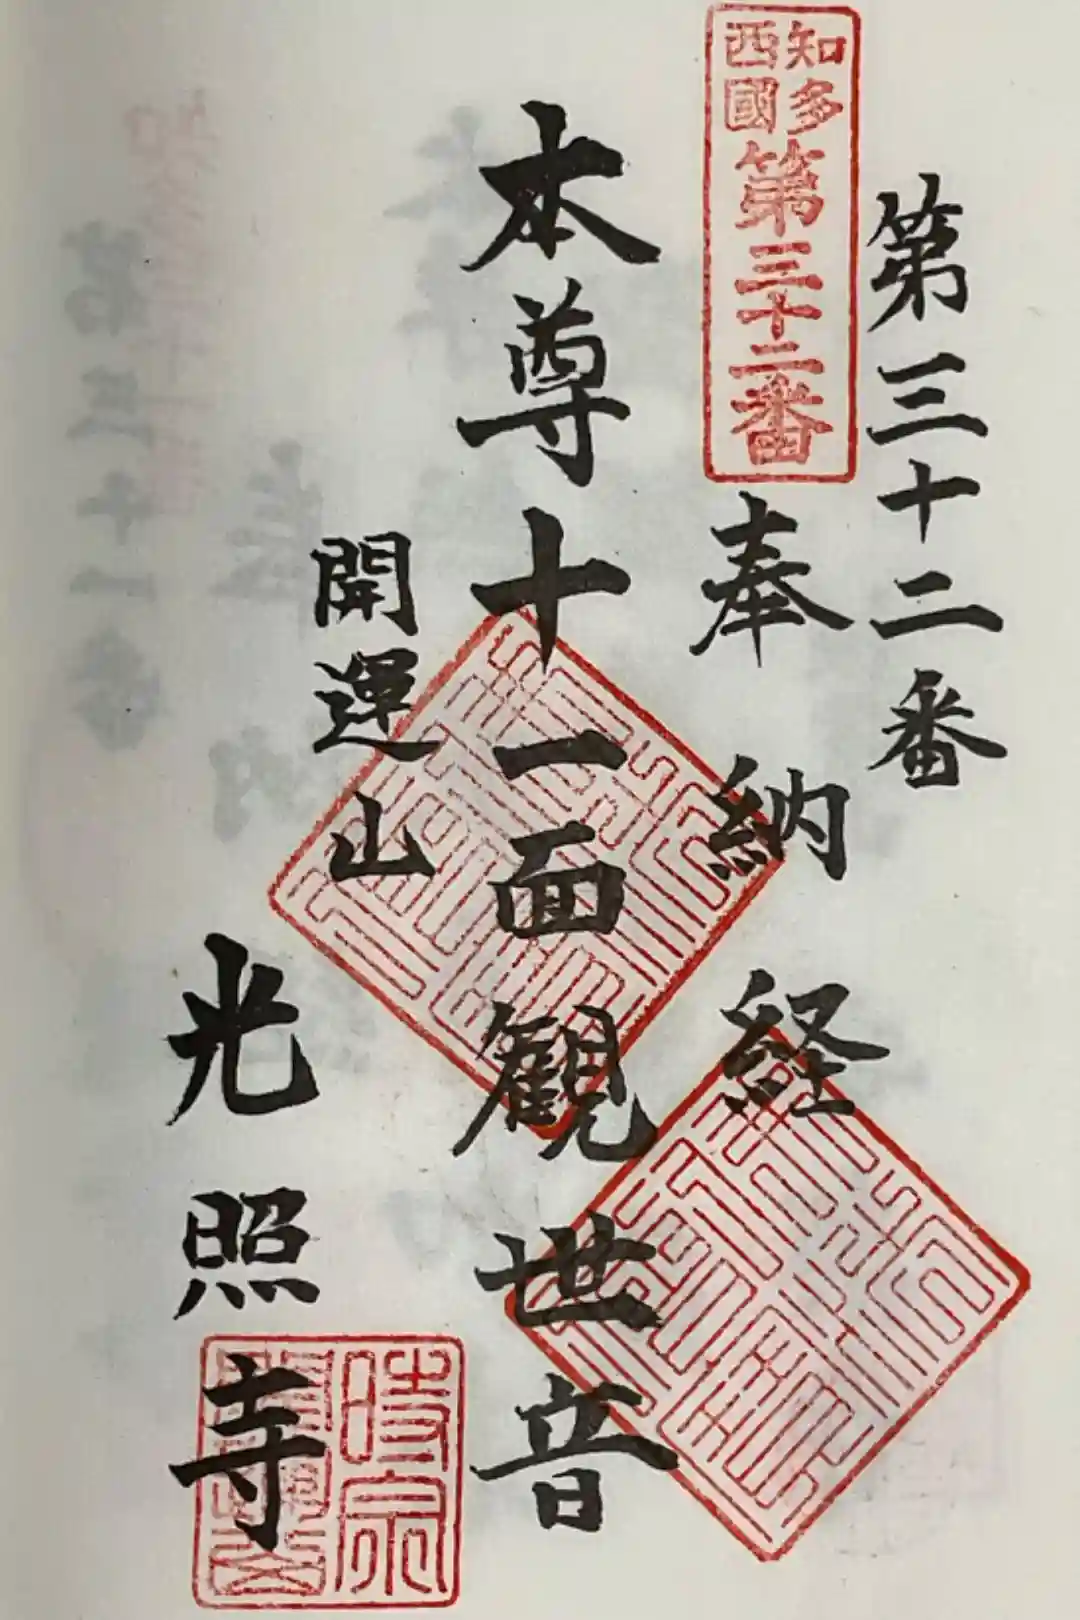 第三十二番
知多
西國
第三十二番
奉納経
本尊十一面観世音
開運山
光照寺
時宗